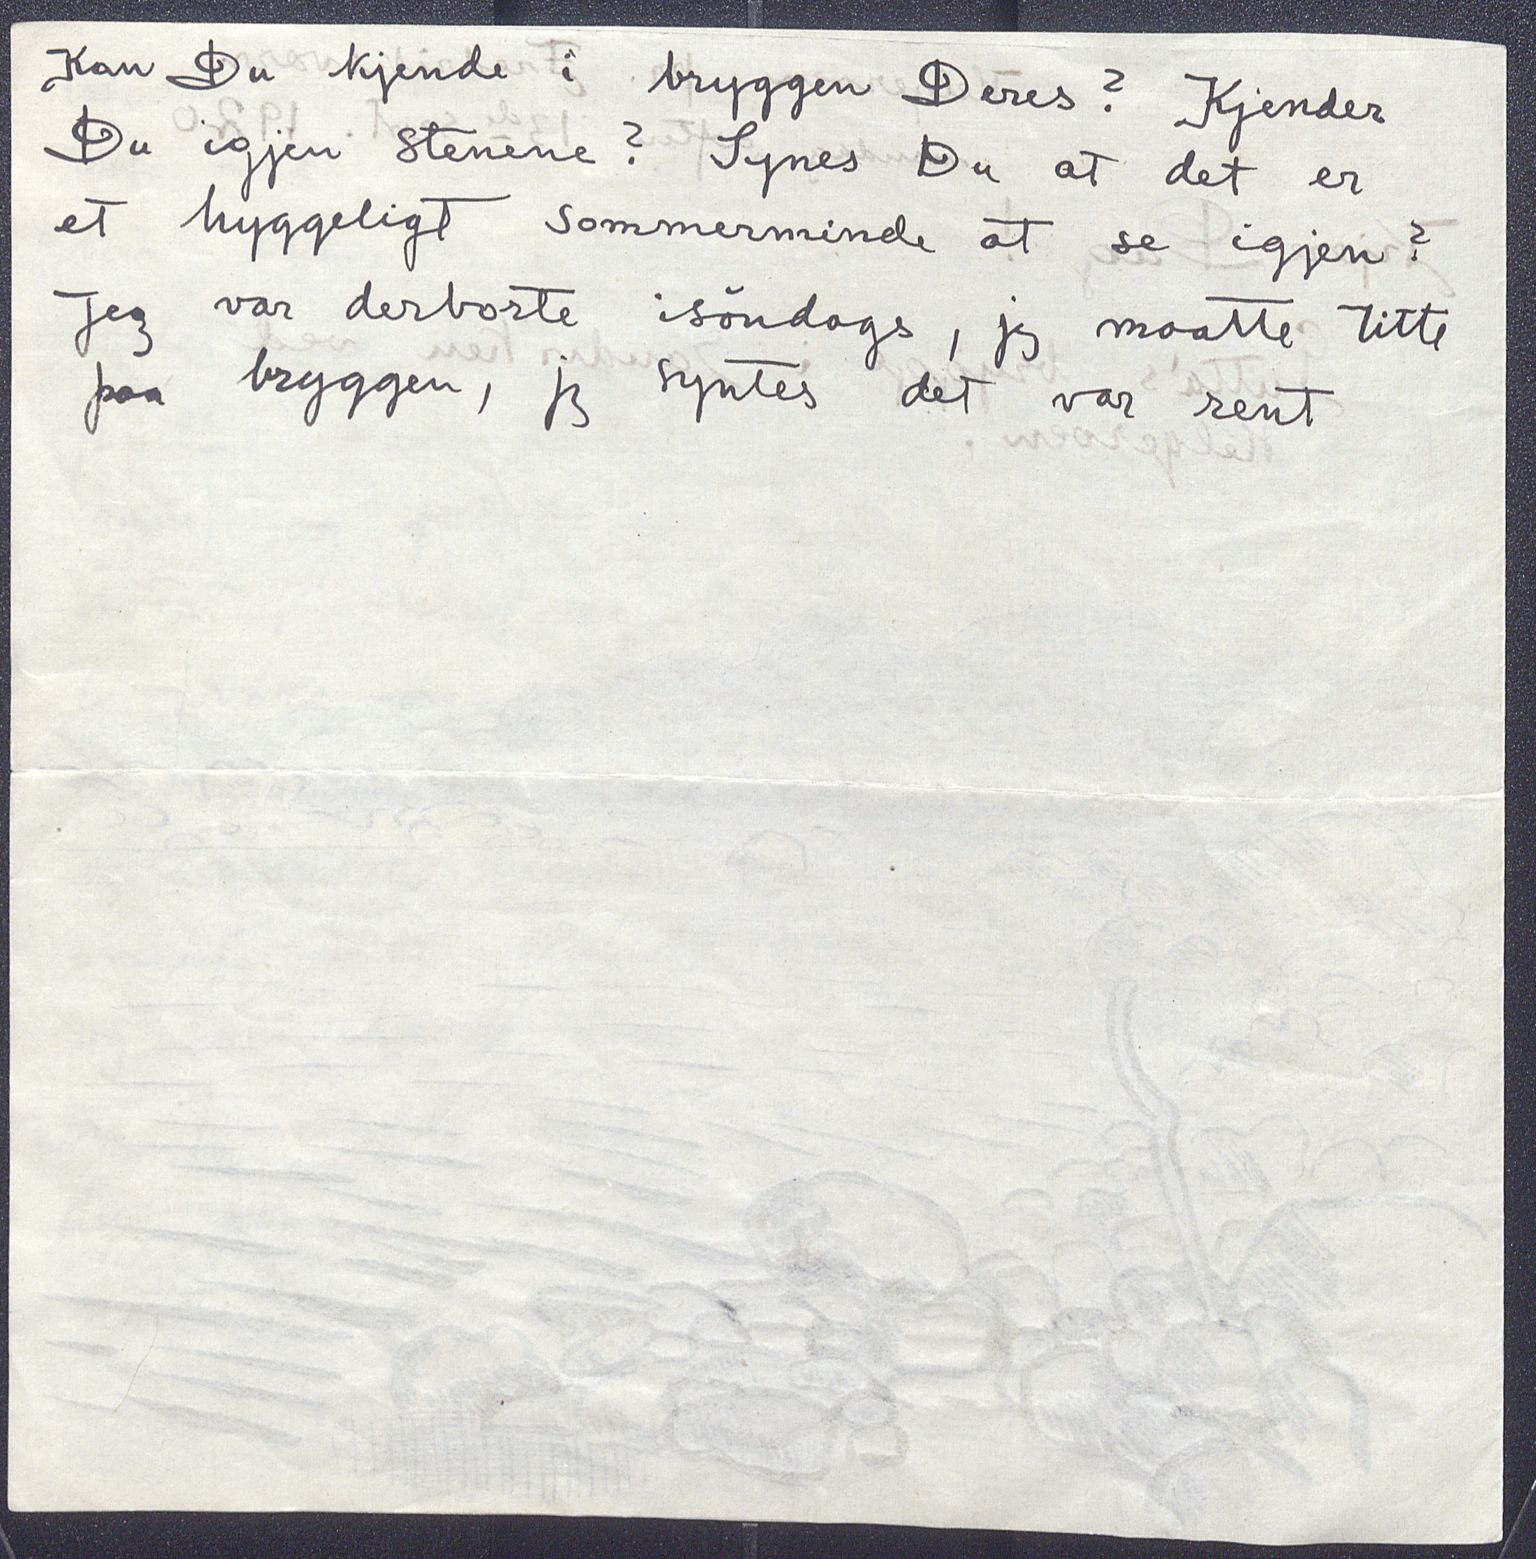 Kan Du kjende i bryggen Deres? Kjender
Du igjen stenene? Synes Du at det er
et hyggeligt sommerminde at se igjen?
Jeg var derborte isöndags, jeg maatte titte
paa bryggen, jeg syntes det var rent